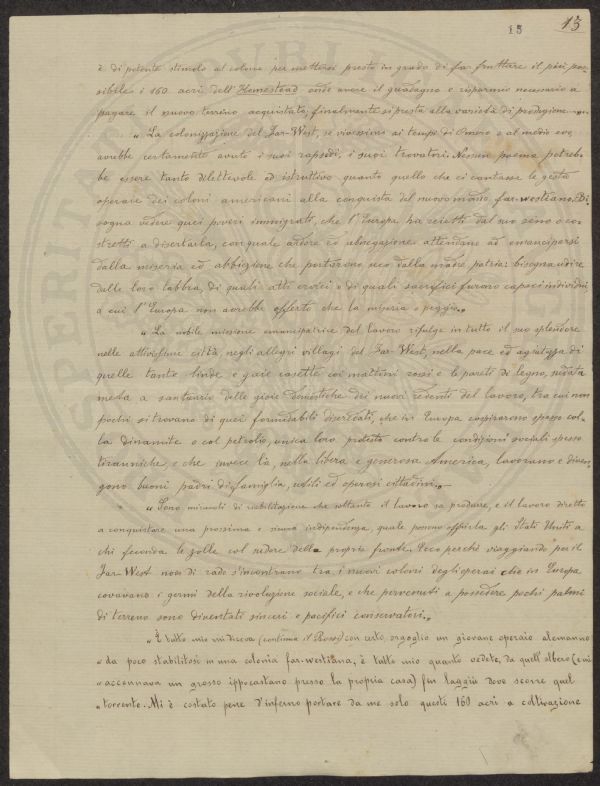 13 13
è di potente stimolo al colono per mettersi presto in grado di far fruttare il più pos-
sibile i 160 acri dell'Homestead onde avere il guadagno e risparmio necessario a
pagare il nuovo terreno acquistato, finalmente si presta alla varietà di produzione
" La colonizzazione del Far-West, se vivessimo ai tempi di Omero o al medio evo,
avrebbe certamente avuto i suoi rapsodi, i suoi trovatori. Nessun poema potreb-
be essere tanto dilettevole ed istruttivo quanto quello che ci cantasse le gesta
operaie dei coloni americani alla conquista del nuovo mondo far-westiano. Bi-
sogna vedere quei poveri immigrati, che l'Europa ha reietti dal suo seno o co-
stretti a disertarla, con quale ardore ed abnegazione attendano ad emanciparsi
dalla miseria ed abbiezione che portarono seco dalla madre patria: bisogna udire
dalle loro labbra, di quali atti eroici e di quali sacrifici furono capaci individui
a cui l'Europa non avrebbe offerto che la miseria o peggio „
" La nobile missione emancipatrice del lavoro rifulge in tutto il suo splendore
nelle attivissime città, negli allegri villagi del Far-West, nella pace ed agiatezza di
quelle tante linde e gaie casette coi mattoni rossi e le pareti di legno,
meta a santuario delle gioie domestiche dei nuovi redenti del lavoro, tra cui non
pochi si trovano di quei formidabili diseredati, che in Europa cospirarono spesso col-
la dinamite o col petrolio, unica loro protesta contro le condizioni sociali spesso
tiranniche, e che invece là, nella libera e generosa America, lavorano e diven-
gono buoni padri di famiglia, utili ed operosi cittadini „
" Sono miracoli di riabilitazione che soltanto il lavoro sa produrre, e il lavoro diretto
a conquistare una prossima e sicura indipendenza, quale ponno offrirla gli Stati Uniti a
chi feconda le zolle col sudore della propria fronte. Ecco perchè viaggiando per il
Far-West non di rado s'incontrano tra i nuovi coloni degli operai che in Europa
covavano i germi della rivoluzione sociale, e che pervenuti a possedere pochi palmi
di terreno sono diventati sinceri e pacifici conservatori „
" È tutto mio mi diceva (continua il Rossi) con certo orgoglio un giovane operaio alemanno
" da poco stabilitosi in una colonia far-westiana, è tutto mio quanto vedete, da quell'albero (e mi
" accennava un grosso ippocastano presso la propria casa) fin laggiù dove scorre quel
" torrente. Mi è costato pene d'inferno portare da me solo questi 160 acri a coltivazione